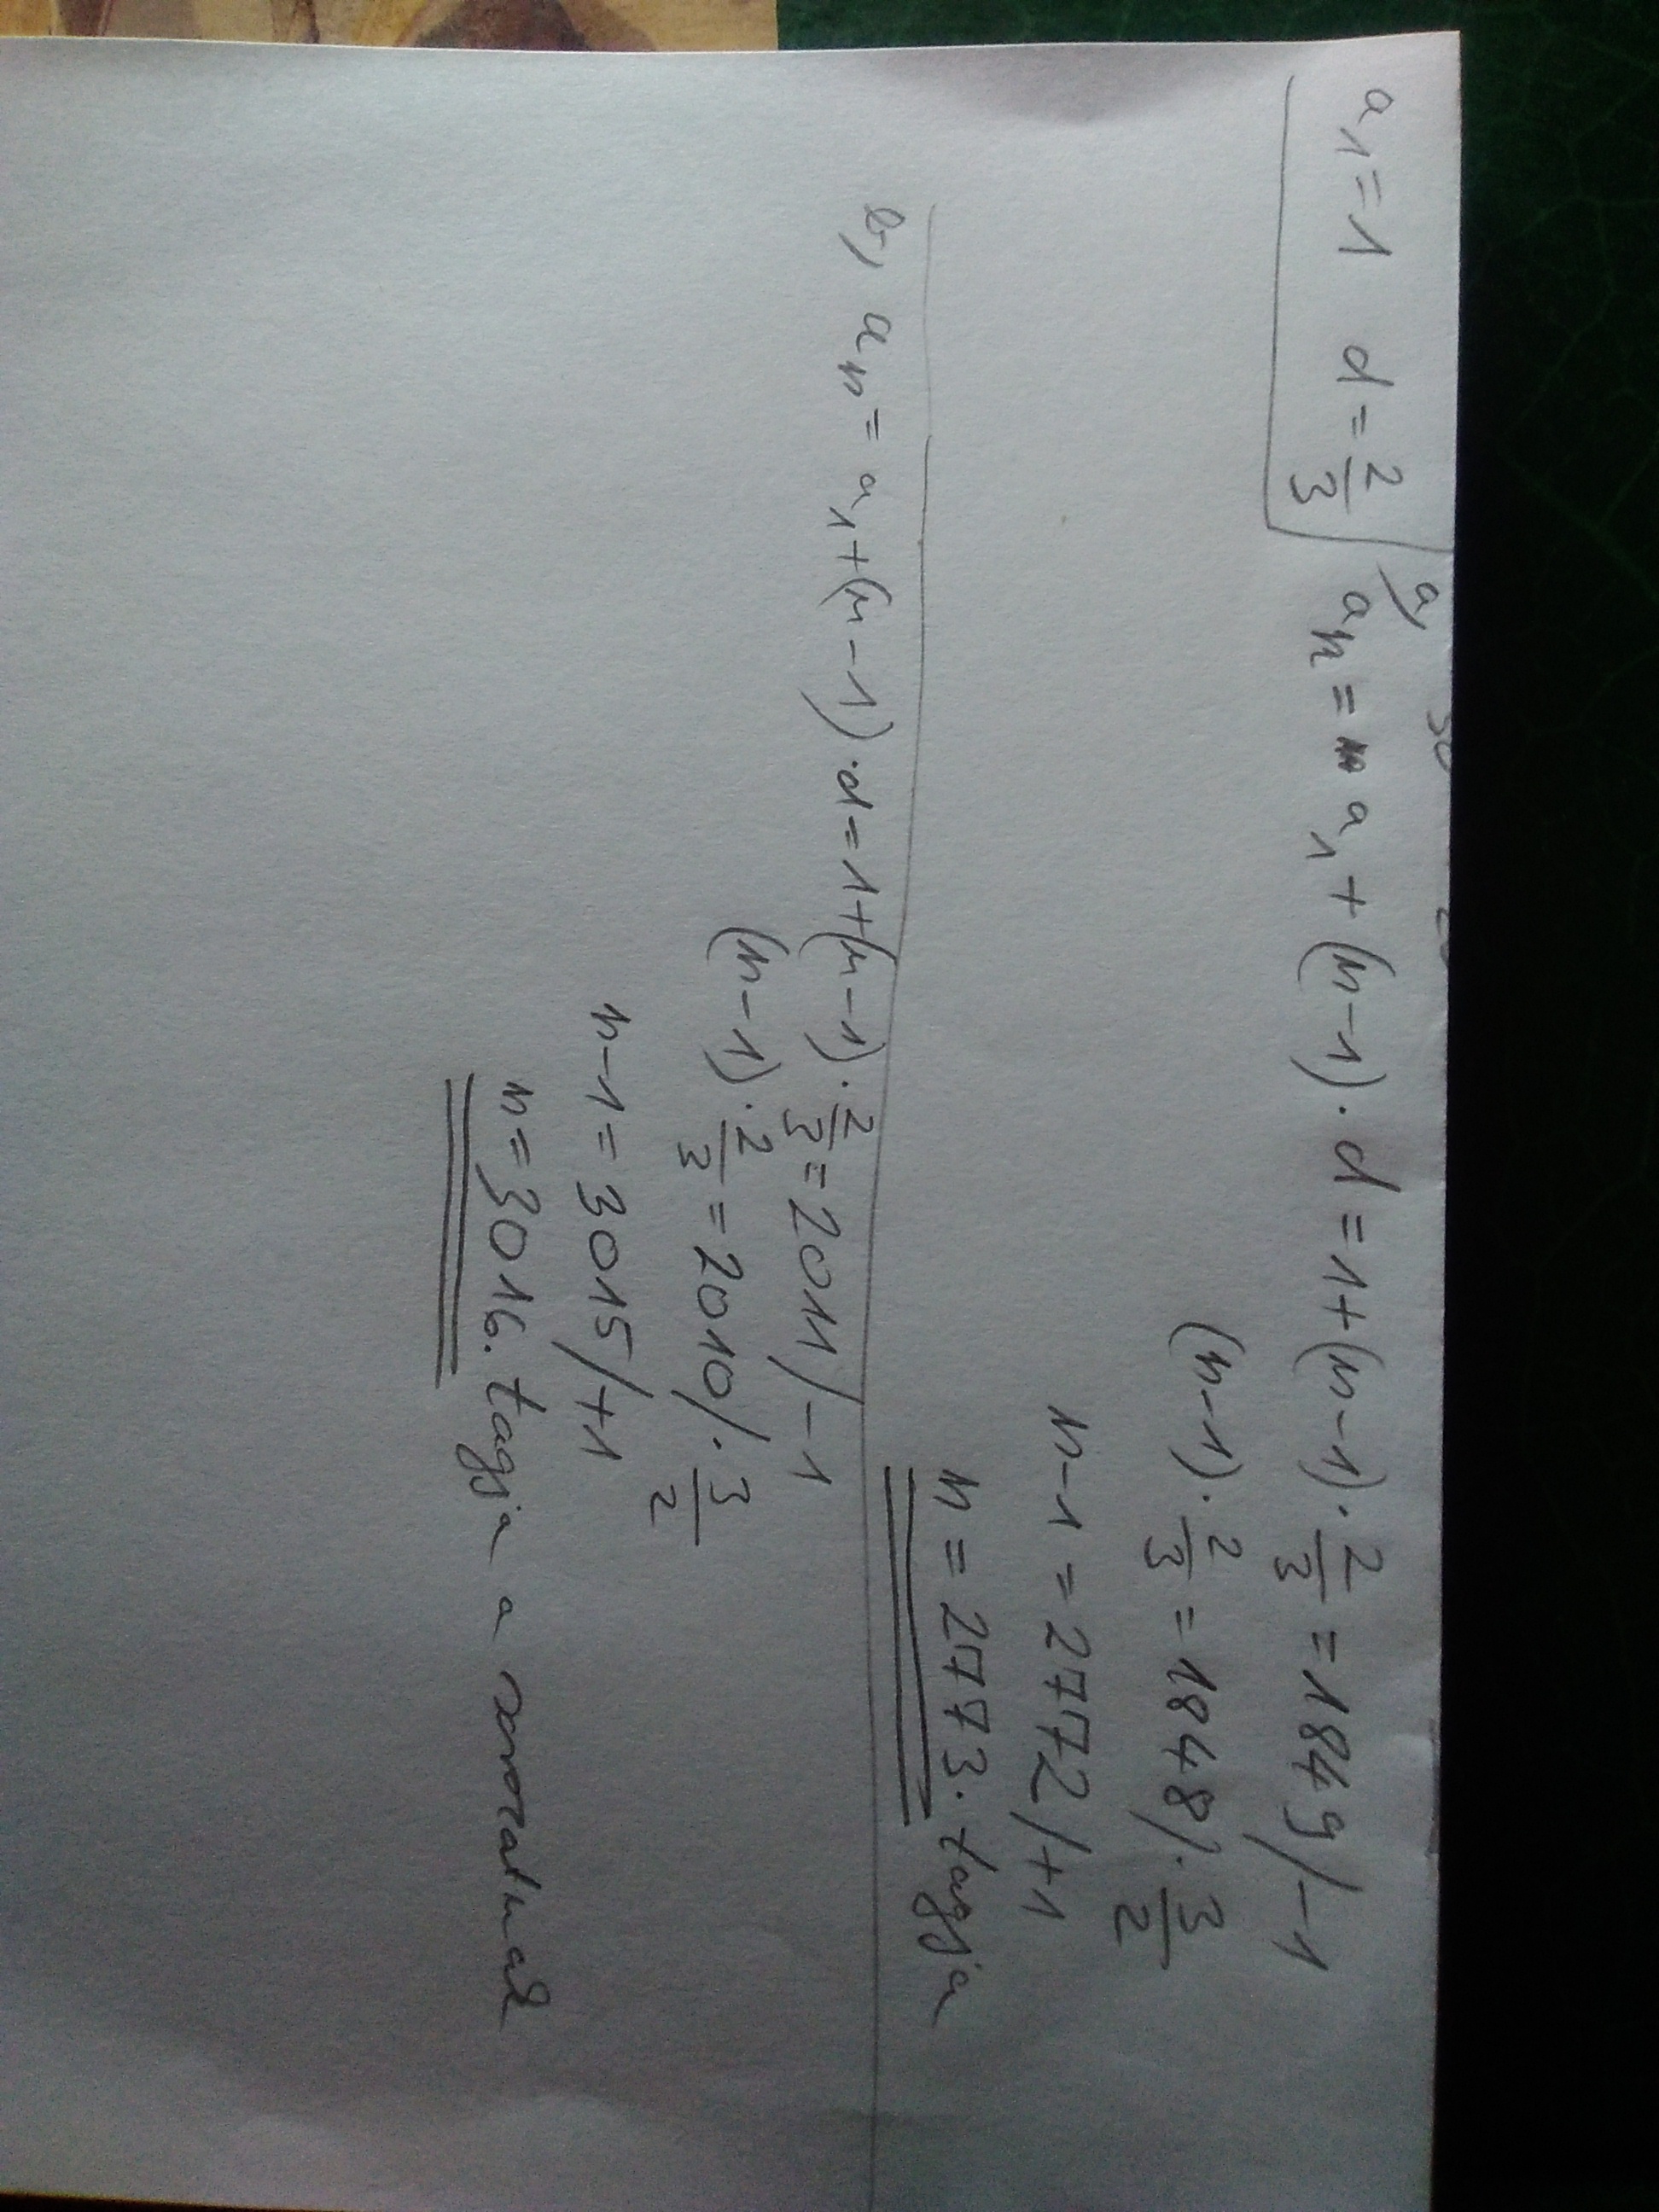 a₁ = 1 d = 2/3
a,
aₙ = a₁ + (n-1) · d = 1 + (n-1) · 2/3 = 1849 /-1
(n-1) · 2/3 = 1848 / · 3/2
n-1 = 2772 /+1
n = 2773. tagja
b, aₙ = a₁ + (n-1) · d = 1 + (n-1) · 2/3 = 2011 /-1
(n-1) · 2/3 = 2010 / · 3/2
n-1 = 3015 /+1
n = 3016. tagja a sorozatnak